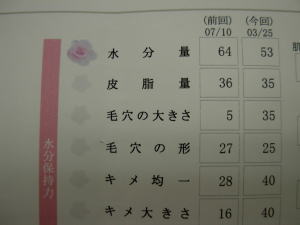 (前回) (今回)
07/10 03/25
水分量 64 53
皮脂量 36 35
毛穴の大きさ 5 35
毛穴の形 27 25
キメ均一 28 40
キメ大きさ 16 40
水分保持力
肌